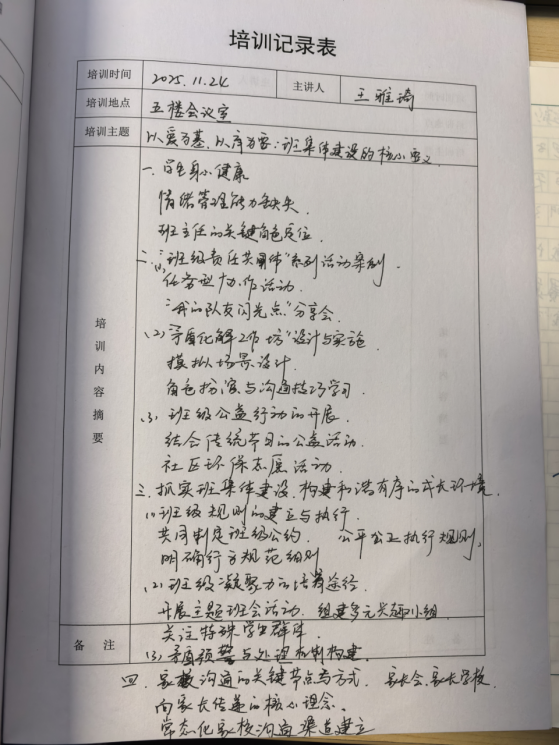 培训记录表
培训时间 2025.11.24 主讲人 王雅琦
培训地点 五楼会议室
培训主题 以爱为基,以序为要:班集体建设的核心要义
培训内容摘要
一、学生身心健康
情绪管理能力缺失.
班主任的关键角色定位.
二、(1)“班级责任共同体”系列活动案例.
任务型协作活动.
“我的队友闪光点”分享会.
(2)“矛盾化解工作坊”设计与实施
模拟场景设计.
角色扮演与沟通技巧学习.
(3) 班级公益行动的开展.
结合传统节日的公益活动.
社区环保志愿活动.
三、抓实班集体建设、构建和谐有序的成长环境.
(1)班级规则的建立与执行.
共同制定班级公约. 公平公正执行规则,
明确行为规范细则
(2)班级凝聚力的培养途径.
开展主题班会活动. 组建多元互助小组.
关注特殊学生群体.
备注
(3)矛盾预警与处理机制构建.
四、家校沟通的关键节点与方式. 家长会、家长学校.
向家长传递的核心理念.
常态化家校沟通渠道建立